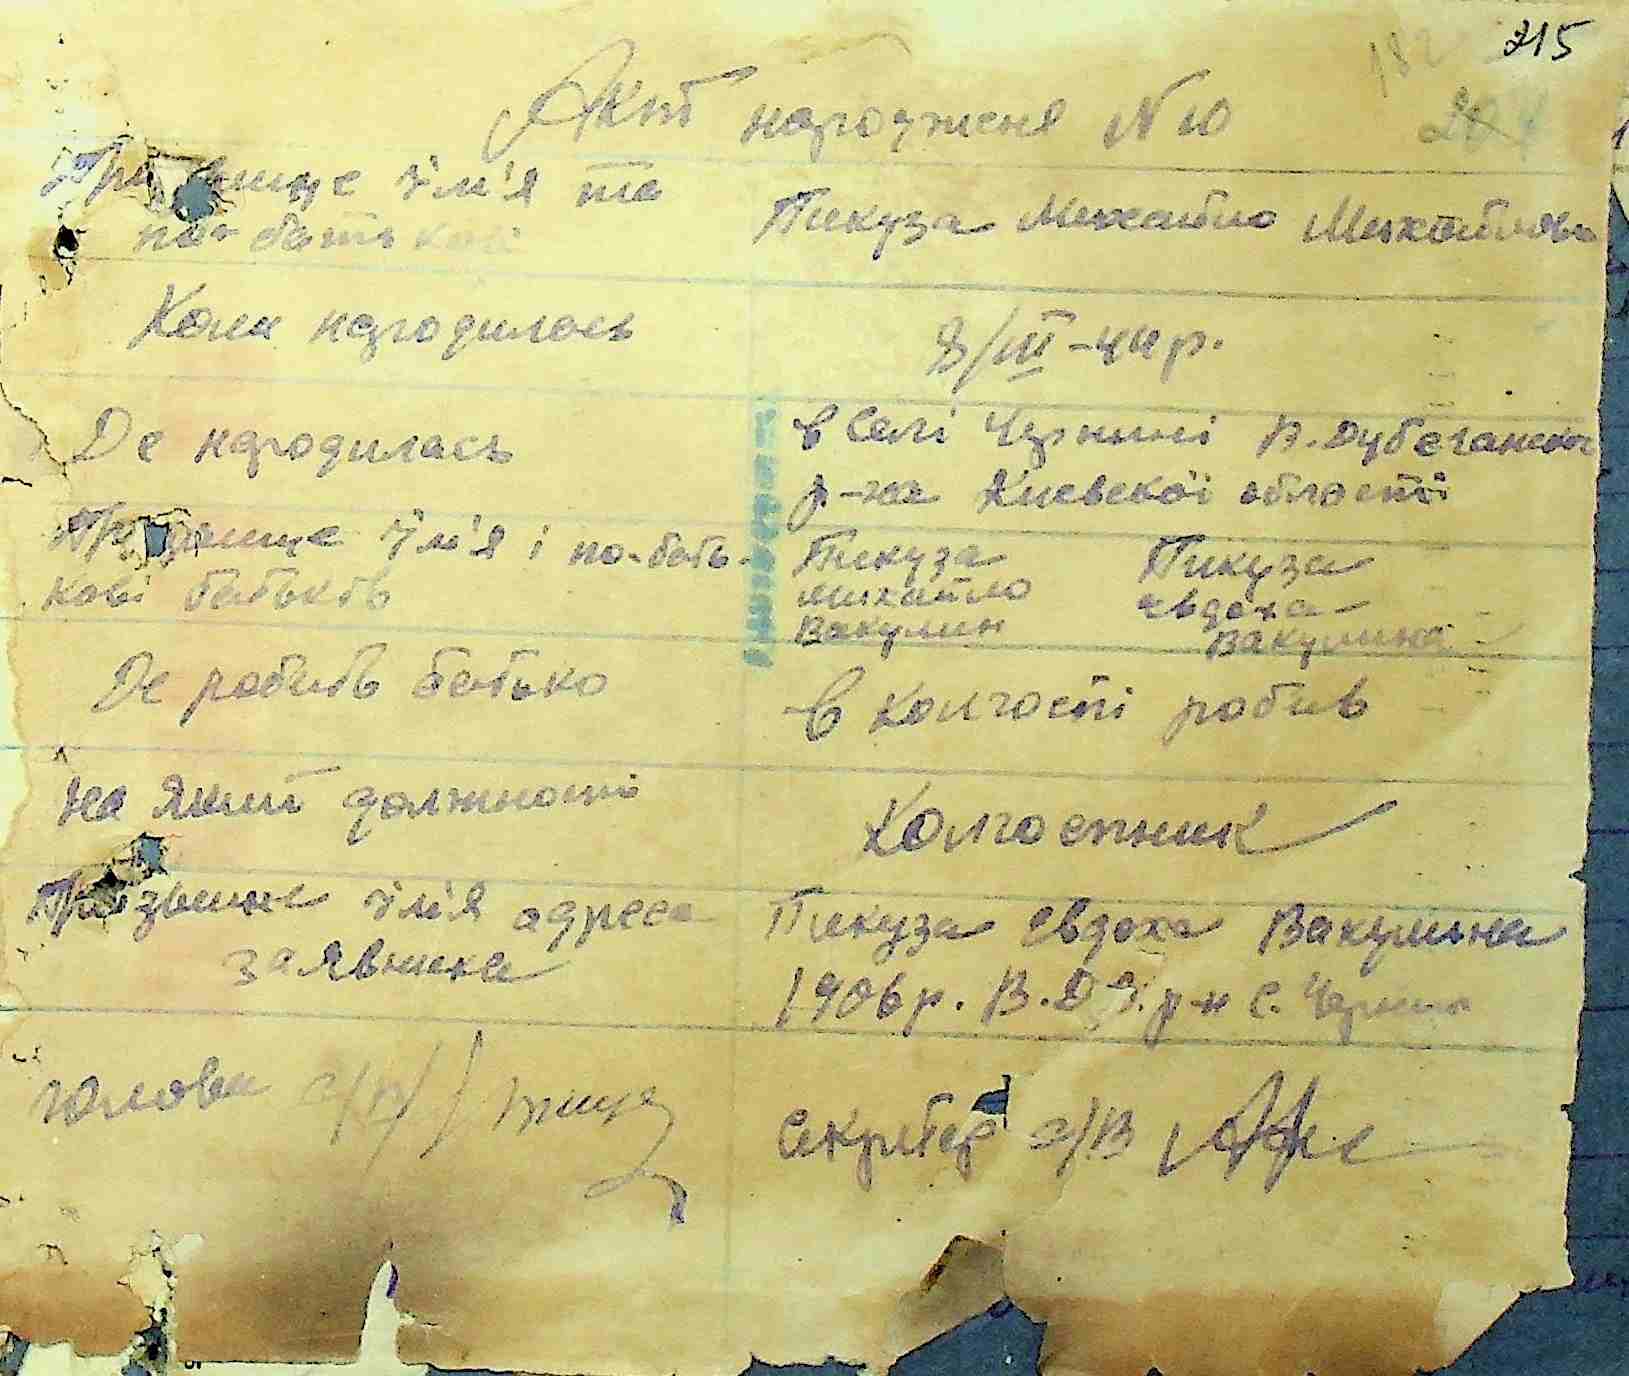 215
182
Акт народженя N 10
Призвище і'м'я та
по батькові
Пикуза Михайло Михайлови
Коли народилась
8/III-44 р.
Де народилась
в Селі Чернині В. Дубечанско
р-на Киевскої області
Призвище і'м'я і по-бать-
кові батьків
Пикуза
михайло
Вакулин
Пикуза
Евдоха
Вакулина
Де робить батько
в колгоспі робив
на який должности
Колгоспник
Призвище і'м'я адреса
заявника
Пикуза Евдоха Вакулина
1906 р. В. Д. р-н С. Чернин
Голова с/
Секритар с/в